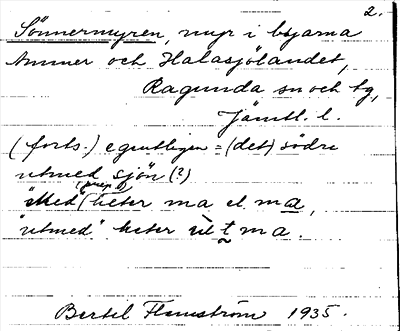 2.
Sönnermyren, myr i byarna
Ammer och Halasjölandet,
Ragunda sn och tg,
Jämtl. l.
(forts.) egentligen = (det) södre
utmed sjön (?)
(prep.)
"Med" heter ma el. ma,
"utmed" heter ùtma.
Bertil Flemström 1935.